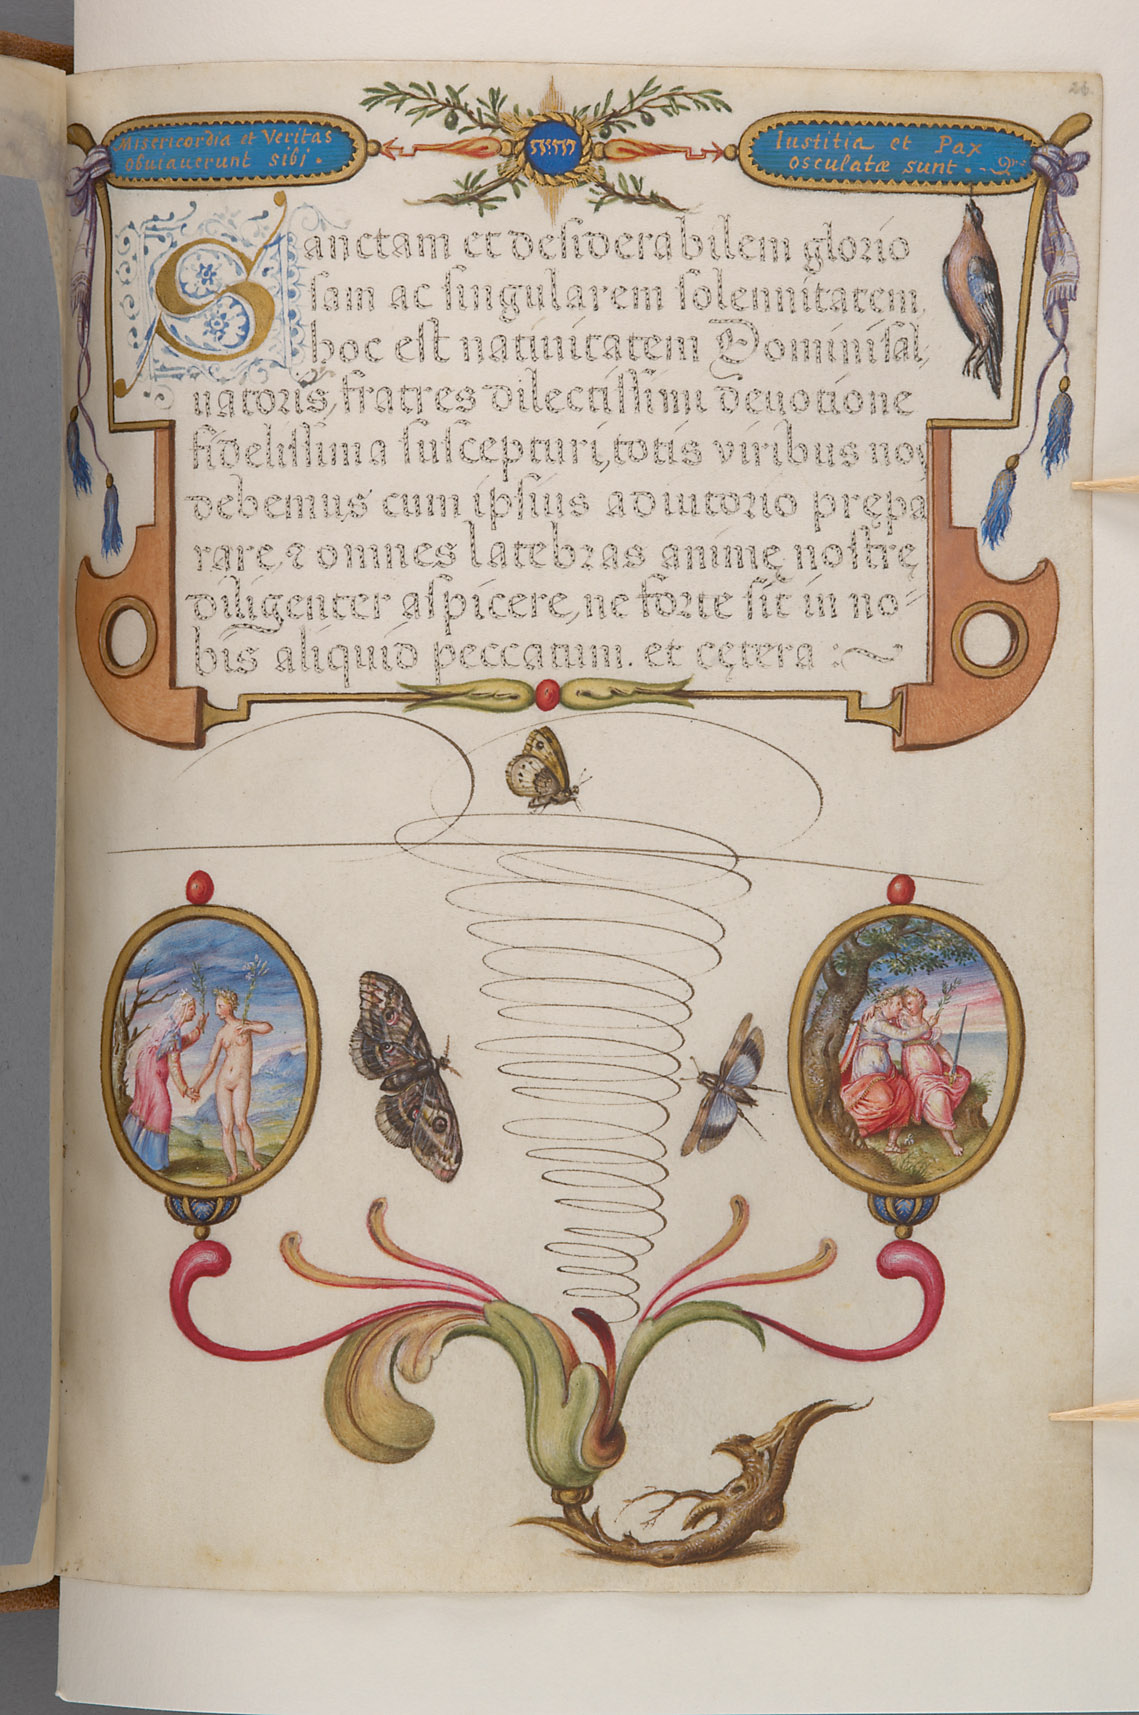 26.
Misericordia et Veritas
obuiauerunt sibi.
יהוה
Iustitia et Pax
osculatæ sunt.
Sanctam et desiderabilem glorio
sam ac singularem solennitatem,
hoc est natiuitatem Domini sal,
uatoris, fratres dilectissimi deuotione
fidelissima suscepturi, totis viribus nos
debemus cum ipsius adiutorio prępa
rarę, ⁊ omnes latebras animę nostrę
diligenter aspicere, ne forte sit in no⸗
bis aliquid peccatum. et cętera :~